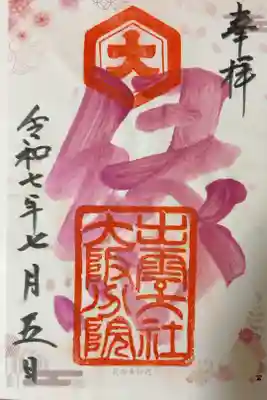 奉拝
大
縁
出雲大社
大阪分院
令和七年七月五日